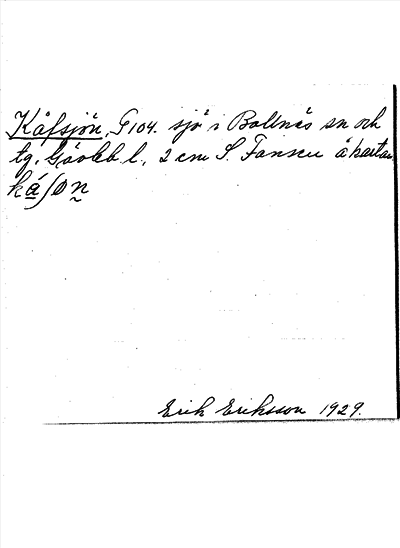 Kåfsjön, G104. sjö i Bollnäs sn och
tg, Gävleb l., 2 cm S. Fansen å kartan
kå∫øn
Erik Eriksson 1929.